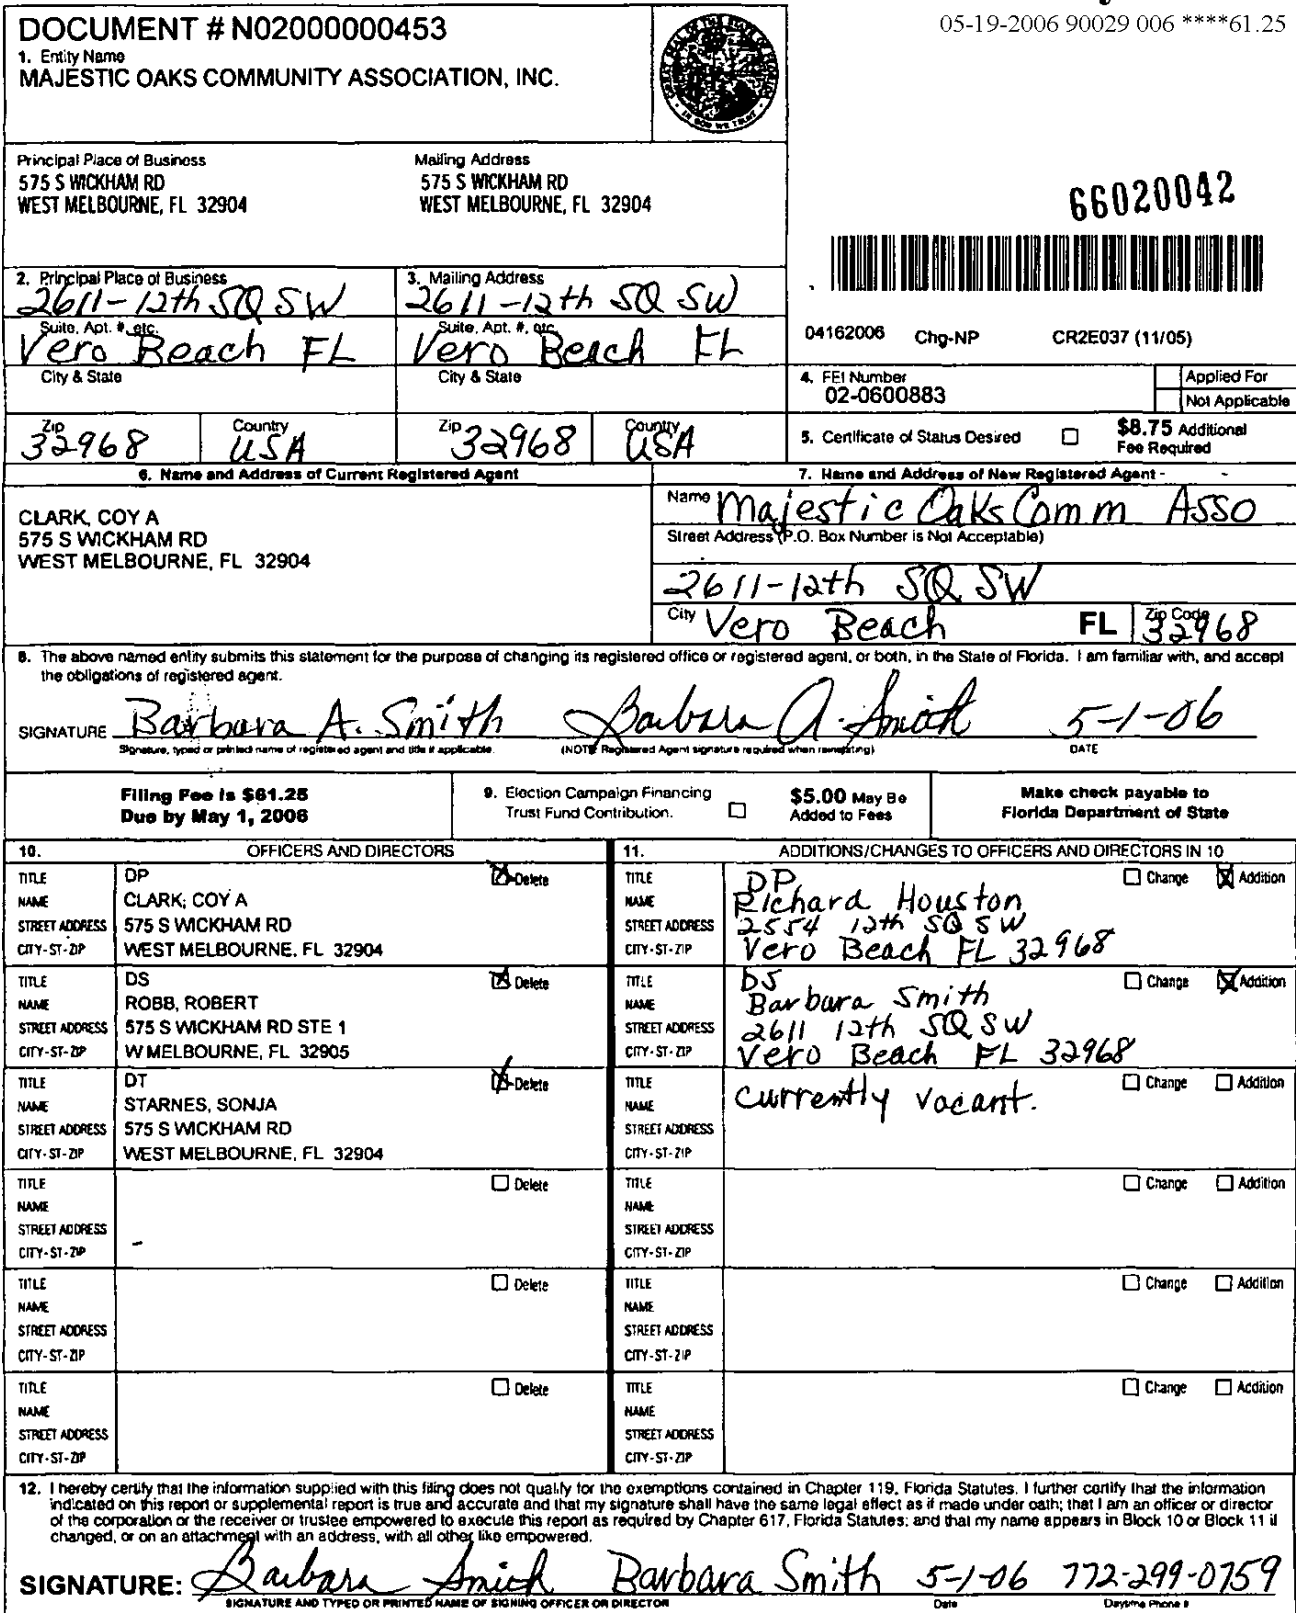 05-19-2006 90029 006 ****61.25
DOCUMENT # N02000000453
1. Entity Name
MAJESTIC OAKS COMMUNITY ASSOCIATION, INC.
Principal Place of Business
575 S WICKHAM RD
WEST MELBOURNE, FL 32904
Mailing Address
575 S WICKHAM RD
WEST MELBOURNE, FL 32904
66020042
2. Principal Place of Business
2611-12th SQ SW
Suite, Apt. #, etc.
Vero Beach FL
City & State
Zip
32968
Country
USA
3. Mailing Address
2611-12th SQ SW
Suite, Apt. #, etc.
Vero Beach FL
City & State
Zip
32968
Country
USA
04162006 Chg-NP CR2E037 (11/05)
4. FEI Number
02-0600883
Applied For
Not Applicable
5. Certificate of Status Desired
$8.75 Additional
Fee Required
6. Name and Address of Current Registered Agent
CLARK, COY A
575 S WICKHAM RD
WEST MELBOURNE, FL 32904
7. Name and Address of New Registered Agent
Name Majestic Oaks Comm Asso
Street Address (P.O. Box Number is Not Acceptable)
2611-12th SQ SW
City Vero Beach FL Zip Code 32968
8. The above named entity submits this statement for the purpose of changing its registered office or registered agent, or both, in the State of Florida. I am familiar with, and accept
the obligations of registered agent.
SIGNATURE Barbara A. Smith Barbara A. Smith 5-1-06
Signature, typed or printed name of registered agent and title if applicable. (NOTE Registered Agent signature required when reinstating) DATE
Filing Fee is $61.25
Due by May 1, 2006
9. Election Campaign Financing
Trust Fund Contribution.
$5.00 May Be
Added to Fees
Make check payable to
Florida Department of State
10. OFFICERS AND DIRECTORS
TITLE DP Delete
NAME CLARK, COY A
STREET ADDRESS 575 S WICKHAM RD
CITY-ST-ZIP WEST MELBOURNE, FL 32904
TITLE DS Delete
NAME ROBB, ROBERT
STREET ADDRESS 575 S WICKHAM RD STE 1
CITY-ST-ZIP W MELBOURNE, FL 32905
TITLE DT Delete
NAME STARNES, SONJA
STREET ADDRESS 575 S WICKHAM RD
CITY-ST-ZIP WEST MELBOURNE, FL 32904
TITLE Delete
NAME
STREET ADDRESS
CITY-ST-ZIP
TITLE Delete
NAME
STREET ADDRESS
CITY-ST-ZIP
TITLE Delete
NAME
STREET ADDRESS
CITY-ST-ZIP
11. ADDITIONS/CHANGES TO OFFICERS AND DIRECTORS IN 10
TITLE DP Change Addition
NAME Richard Houston
STREET ADDRESS 2554 12th SQ SW
CITY-ST-ZIP Vero Beach FL 32968
TITLE DS Change Addition
NAME Barbara Smith
STREET ADDRESS 2611 12th SQ SW
CITY-ST-ZIP Vero Beach FL 32968
TITLE Change Addition
NAME currently vacant.
STREET ADDRESS
CITY-ST-ZIP
TITLE Change Addition
NAME
STREET ADDRESS
CITY-ST-ZIP
TITLE Change Addition
NAME
STREET ADDRESS
CITY-ST-ZIP
TITLE Change Addition
NAME
STREET ADDRESS
CITY-ST-ZIP
12. I hereby certify that the information supplied with this filing does not qualify for the exemptions contained in Chapter 119, Florida Statutes. I further certify that the information
indicated on this report or supplemental report is true and accurate and that my signature shall have the same legal effect as if made under oath; that I am an officer or director
of the corporation or the receiver or trustee empowered to execute this report as required by Chapter 617, Florida Statutes; and that my name appears in Block 10 or Block 11 if
changed, or on an attachment with an address, with all other like empowered.
SIGNATURE: Barbara Smith Barbara Smith 5-1-06 772-299-0759
SIGNATURE AND TYPED OR PRINTED NAME OF SIGNING OFFICER OR DIRECTOR Date Daytime Phone #